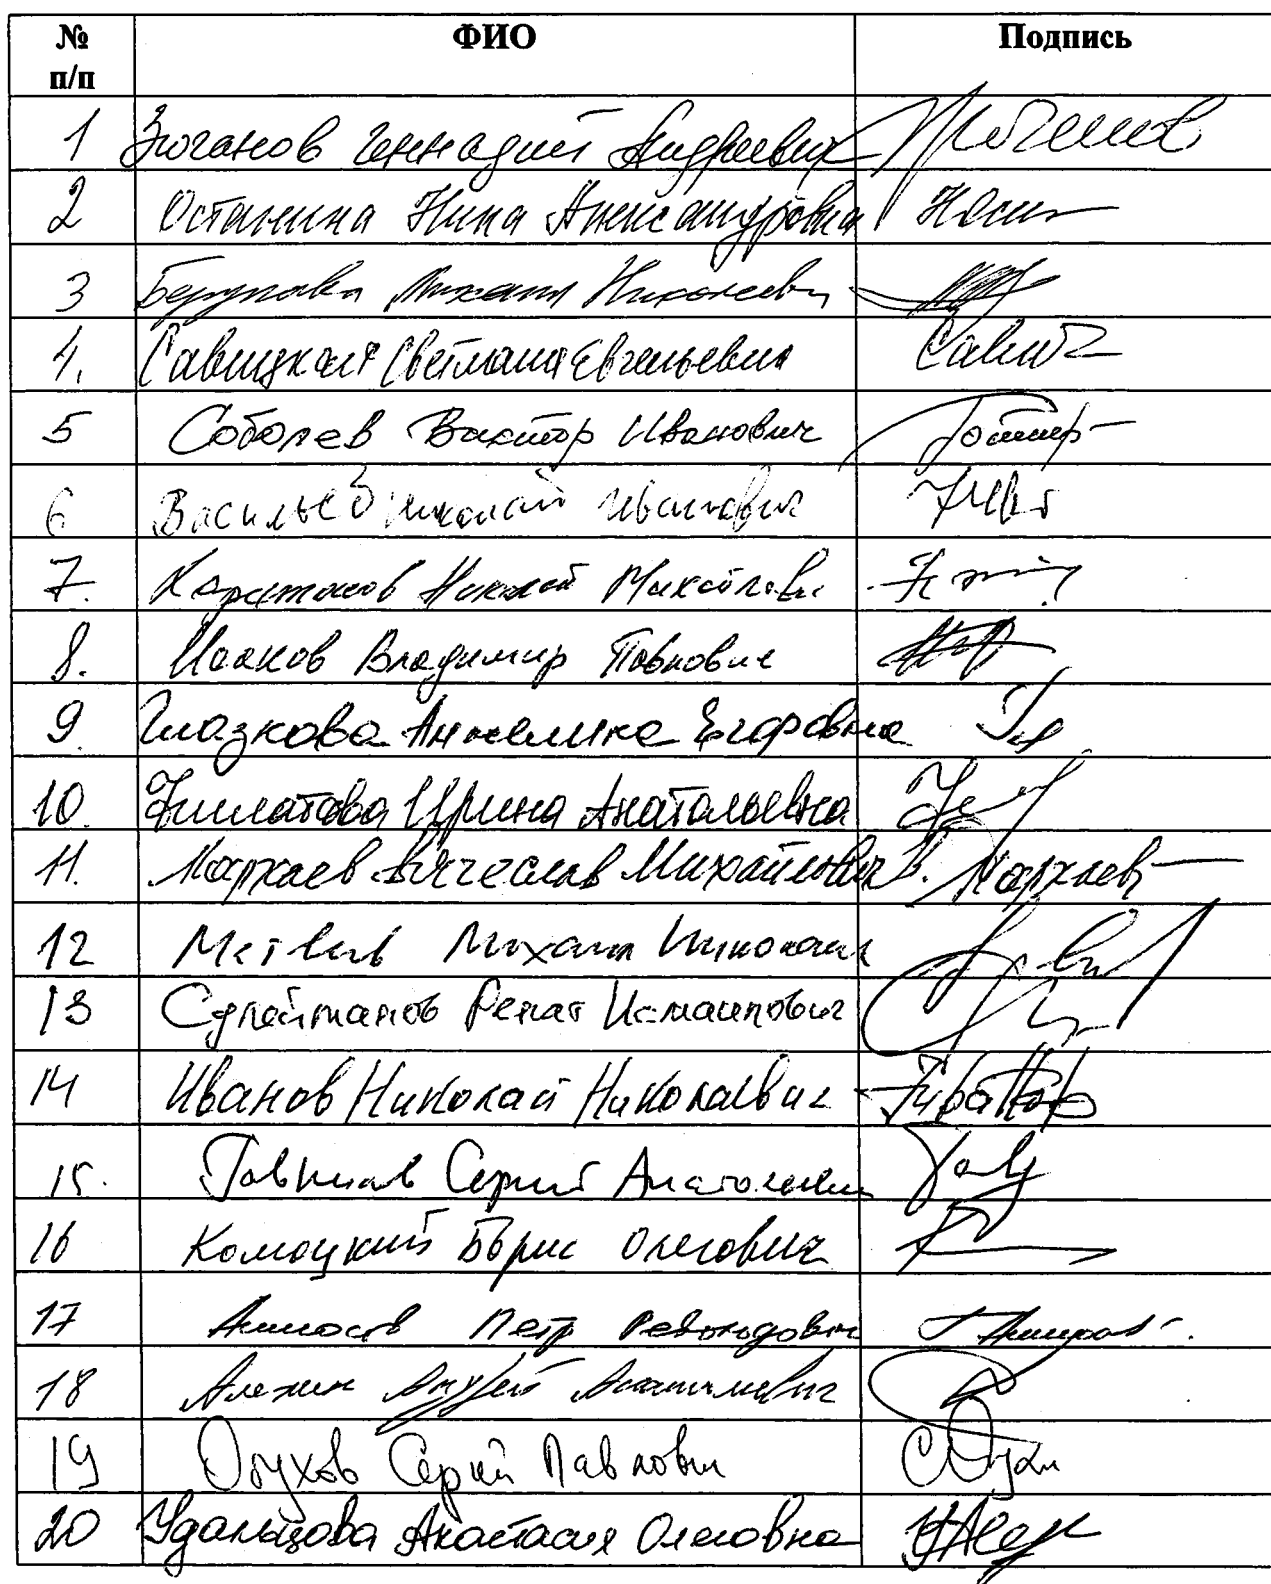 № п/п ФИО Подпись
1 Зюганов Геннадий Андреевич
2 Останина Нина Александровна
3 Михаил Николаевич
4. Савицкая Светлана Евгеньевна
5 Соболев Виктор Иванович
6 Васильев Николай Иванович
7. Харитонов Николай Михайлович
8. Исаков Владимир Павлович
9 Глазкова Анжелика Егоровна
10. Филатова Ирина Анатольевна
11. Мархаев Вячеслав Михайлович В. Мархаев
12 Матвеев Михаил Николаевич
13 Сулейманов Ренат Исмаилович
14 Иванов Николай Николаевич
15. Гаврилов Сергей Анатольевич
16 Комоцкий Борис Олегович
17 Аммосов Петр Револьдович
18 Алехин Андрей Анатольевич
19 Обухов Сергей Павлович
20 Удальцова Анастасия Олеговна